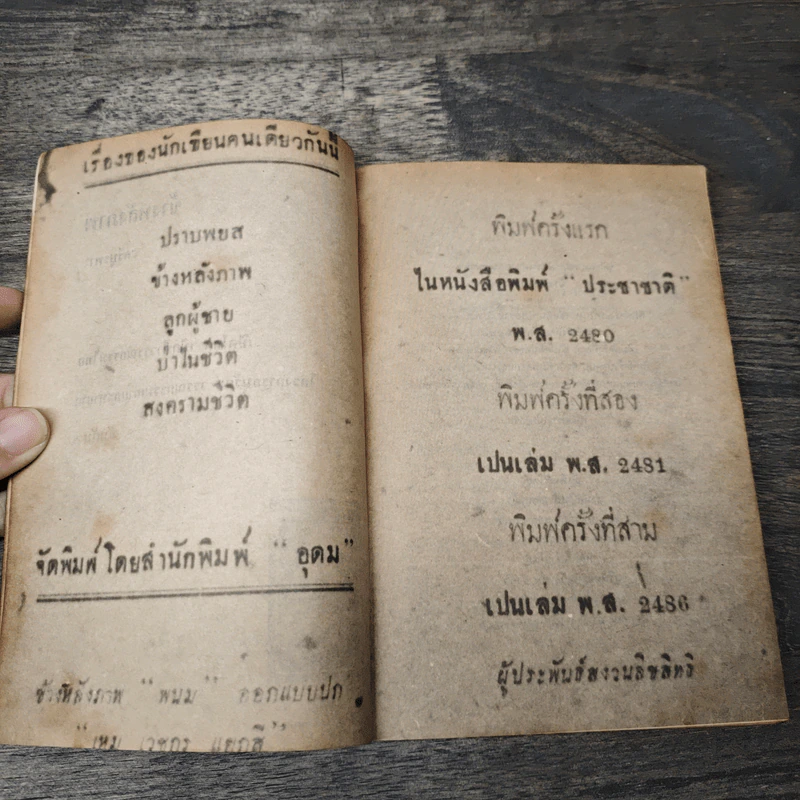 เรื่องของนักเขียนคนเดียวกันนี้
ปราบพยส
ข้างหลังภาพ
ลูกผู้ชาย
บำในชีวิต
สงครามชีวิต
จัดพิมพ์โดยสำนักพิมพ์ “อุดม”
ข้างหลังภาพ “พนม” ออกแบบปก
“เหม เวชกร แยกสี”
พิมพ์ครั้งแรก
ในหนังสือพิมพ์ “ประชาชาติ”
พ.ส. 2480
พิมพ์ครั้งที่สอง
เปนเล่ม พ.ส. 2481
พิมพ์ครั้งที่สาม
เปนเล่ม พ.ส. 2486
ผู้ประพันธ์สงวนลิขสิทธิ